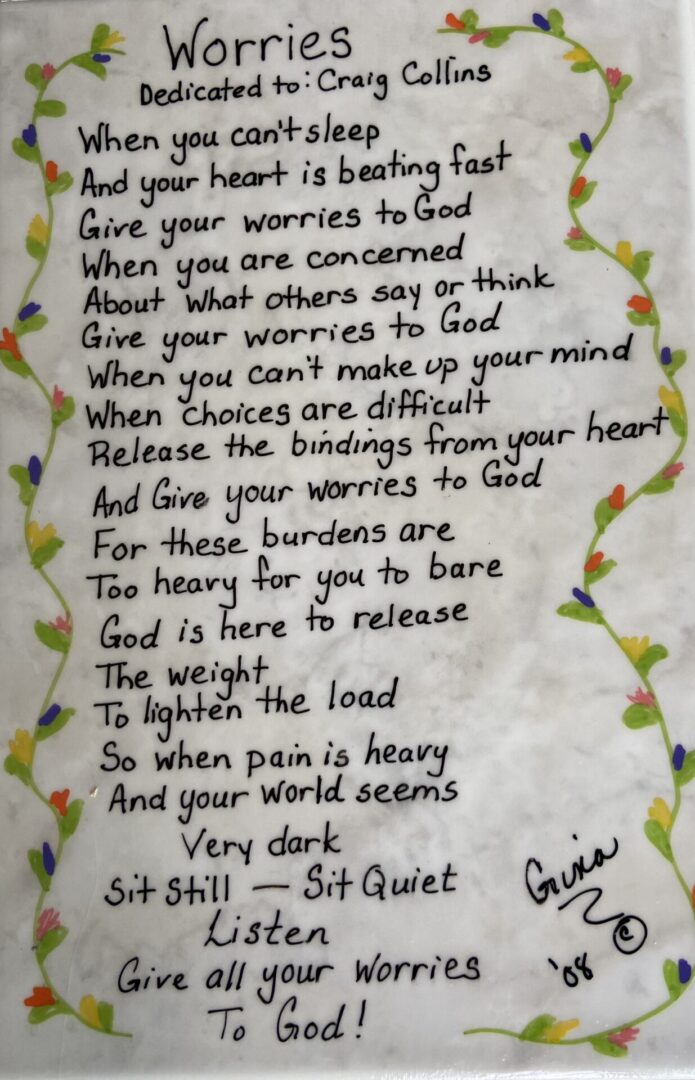 Worries
Dedicated to: Craig Collins
When you can't sleep
And your heart is beating fast
Give your worries to God
When you are concerned
About what others say or think
Give your worries to God
When you can't make up your mind
When choices are difficult
Release the bindings from your heart
And Give your worries to God
For these burdens are
Too heavy for you to bare
God is here to release
The weight
To lighten the load
So when pain is heavy
And your world seems
Very dark
Sit Still — Sit Quiet
Listen
Give all your Worries
To God!
©
'08